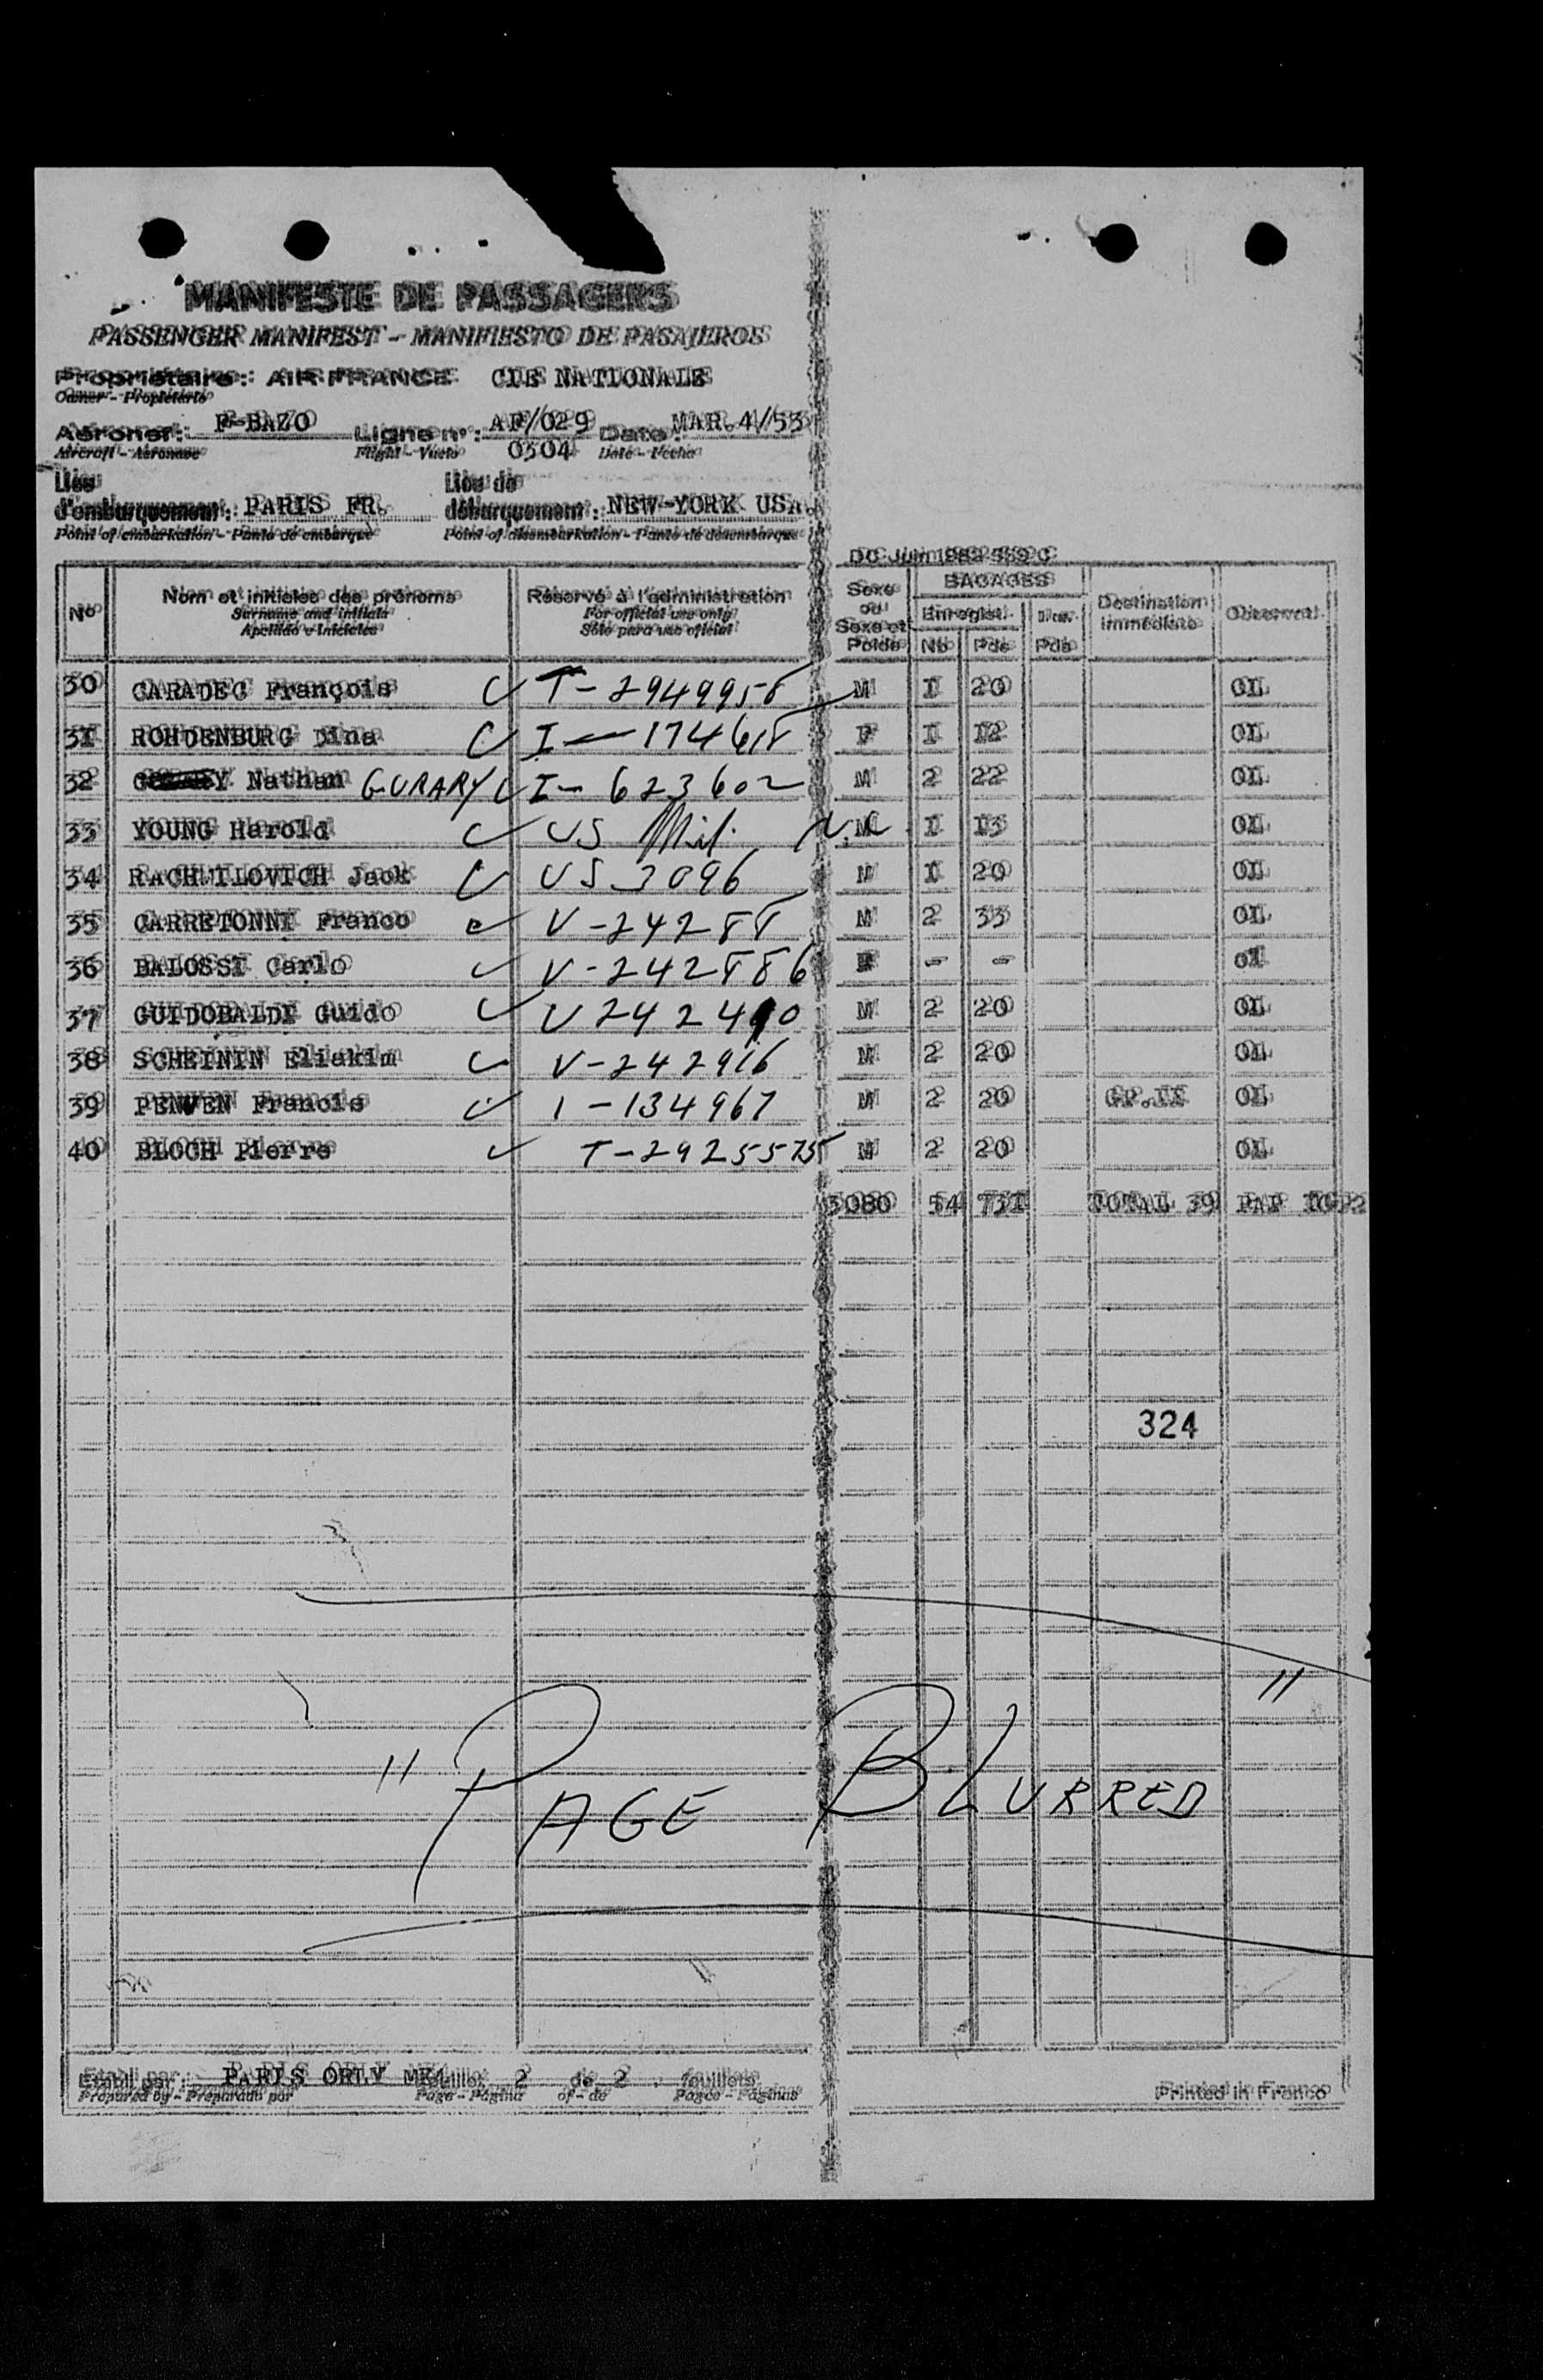 MANIFESTE DE PASSAGERS
PASSENGER MANIFEST - MANIFIESTO DE PASAJEROS
Propriétaire : AIR FRANCE CIE NATIONALE
Owner - Propietario
Aéronef : F-BAZO Ligne n° : AF/029 Date : MAR.4//53
Aircraft - Aéronave Flight - Vuelo 0304 Date - Fecha
Lieu Lieu de
d'embarquement : PARIS FR. débarquement : NEW-YORK USA.
Point of embarkation - Punto de embarque Point of disembarkation - Punto de desembarque
No Nom et initiales des prénoms Réservé à l'administration Sexe ou Sexe et Poids BAGAGES Destination immédiate Observat.
Surname and initials For official use only Enregist.
Apellido e iniciales Sólo para uso oficial Nb Pds Pds
30 CARADEC François T-2949958 M I 20 OL
3I ROHDENBURG Dina I-174618 F I I2 OL
32 Nathan GURARY I-623602 M 2 22 OL
33 YOUNG Harold US Mil. M I I3 OL
34 RACHMILOVICH Jack US 3096 M I 20 OL
35 CARRETONNI Franco V-24288 M 2 33 OL
36 BALOSSI Carlo V-242886 - -
37 GUIDOBALDI Guido V242410 M 2 20 OL
38 SCHEININ Eliakim V-242916 M 2 20 OL
39 PENVEN Francis I-134967 M 2 20 GP.II OL
40 BLOCH Pierre T-2925575 M 2 20 OL
3080 54 73I TOTAL 39 PAP
324
" PAGE BLURRED "
Etabli par : PARIS ORLY feuillet 2 de 2 feuillets
Prepared by - Preparado por Page - Página of - de Pages - Páginas
Printed in France